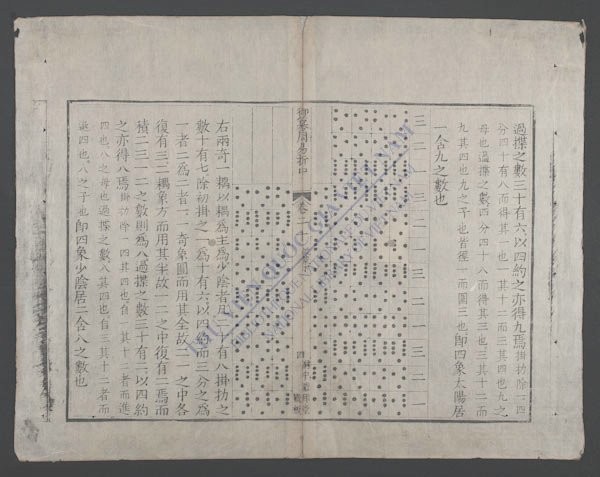 過揲之數三十有六以四約之亦得九焉掛扐除一四
分四十有八而得其一也一其十二而三其四也九之
母也過揲之數四分四十八而得其三也三其十二而
九其四也九之子也皆徑一而圍三也即四象太陽居
一含九之數也
御纂周易折中
卷二十
四
右兩奇一耦以耦為主為少陰者凡二十有八掛扐之
數十有七除初掛之一為十有六以四約而三分之為
一者二為二者一一奇象圓而用其全故二一之中各
復有三二耦象方而用其半故一二之中復有二焉而
積二三一二之數則為八過揲之數三十有二以四約
之亦得八焉掛扐除一四其四也自一其十二者而進
四也八之母也過揲之數八其四也自三其十二者而
退四也八之子也即四象少陰居二含八之數也